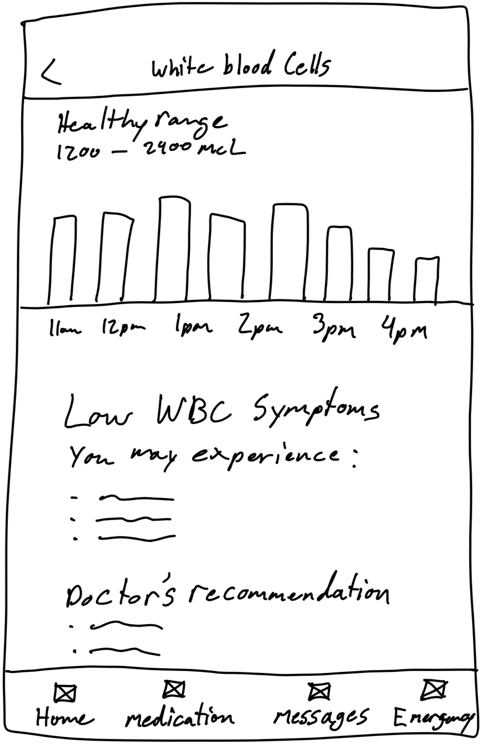 <
White blood Cells
Healthy range
1200 – 2400 mcL
11am 12pm 1pm 2pm 3pm 4pm
Low WBC Symptoms
You may experience:
Doctor's recommendation
Home medication messages Emergency